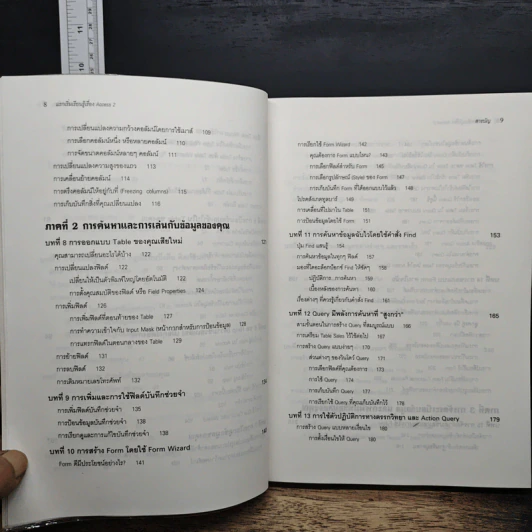 8 แรกเริ่มเรียนรู้เรื่อง Access 2
การเปลี่ยนแปลงความกว้างคอลัมน์โดยการใช้เมาส์ 109
การเลือกคอลัมน์หนึ่ง หรือหลายคอลัมน์ 110
การจัดขนาดคอลัมน์หลายๆ คอลัมน์ 111
การเปลี่ยนแปลงความสูงของแถว 113
การเคลื่อนย้ายคอลัมน์ 114
การตรึงคอลัมน์ให้อยู่กับที่ (Freezing columns) 115
การเก็บบันทึกสิ่งที่คุณเปลี่ยนแปลง 116
ภาคที่ 2 การค้นหาและการเล่นกับข้อมูลของคุณ
บทที่ 8 การออกแบบ Table ของคุณเสียใหม่
คุณสามารถเปลี่ยนอะไรได้บ้าง
การเปลี่ยนแปลงฟิลด์ 122
เปลี่ยนให้เป็นตัวพิมพ์ใหญ่โดยอัตโนมัติ 122
การตั้งคุณสมบัติของฟิลด์ หรือ Field Properties 124
การเพิ่มฟิลด์ 126
การเพิ่มฟิลด์ที่ตอนท้ายของ Table 127
การทำความเข้าใจกับ Input Mask (หน้ากากสำหรับการป้อนข้อมูล) 128
การแทรกฟิลด์ในตอนกลางของ Table 129
การย้ายฟิลด์ 130
การลบฟิลด์ 131
การเติมหมายเลขโทรศัพท์ 132
บทที่ 9 การเพิ่มและการใช้ฟิลด์บันทึกช่วยจำ
การเพิ่มฟิลด์บันทึกช่วยจำ 135
การป้อนข้อมูลบันทึกช่วยจำ 138
การเรียกดูและการแก้ไขบันทึกช่วยจำ 138
บทที่ 10 การสร้าง Form โดยใช้ Form Wizard
Form ดีมีประโยชน์อย่างไร? 141
สารบัญ 9
การเรียกใช้ Form Wizard 142
คุณต้องการ Form แบบไหน? 143
การเลือกฟิลด์สำหรับ Form 145
การเลือกรูปลักษณ์ (Style) ของ Form
การเก็บบันทึก Form ที่ได้ออกแบบไว้แล้ว
การเคลื่อนที่ไปมาใน Table 151
การป้อนข้อมูลโดยใช้ Form
บทที่ 11 การค้นหาข้อมูลฉับไวโดยใช้คำสั่ง Find 153
ปุ่ม Find แสนรู้ 154
การค้นหาข้อมูลในทุกๆ ฟิลด์
ปฏิบัติการ...การค้นหา
เบื้องหลังของการค้นหา
เรื่องต่างๆ ที่ควรรู้เกี่ยวกับคำสั่ง Find 161
บทที่ 12 Query มีพลังการค้นหาที่ "สูงกว่า" 165
สามขั้นตอนในการสร้าง Query ที่สมบูรณ์แบบ 166
การเตรียม Table Sales ไว้ใช้ต่อไป 168
การสร้าง Query แบบง่ายๆ 170
ส่วนต่างๆ ของวินโดว์ Query 171
การเลือกฟิลด์ที่คุณต้องการ 173
การใช้ Query 174
การเก็บบันทึก Query 177
การเรียกใช้ Query ที่คุณเก็บบันทึกไว้ 178
บทที่ 13 การใช้ตัวปฏิบัติการทางตรรกวิทยา และ Action Query 179
การสร้าง Query แบบหลายเงื่อนไข 180
การตั้งเงื่อนไขให้ Query 180